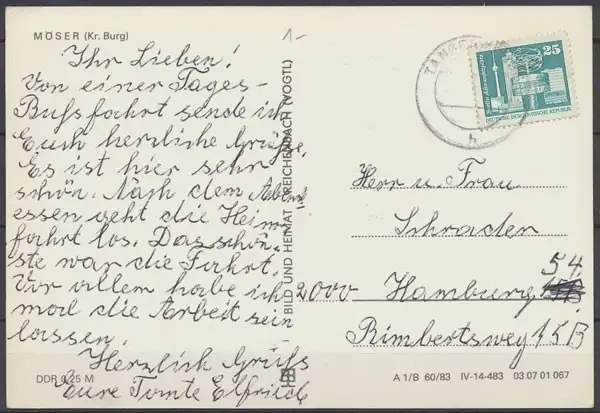 MÖSER (Kr. Burg)
1-
Ihr Lieben!
Von einer Tages-
Bußfahrt sende ich
Euch herzliche Grüße.
Es ist hier sehr
schön. Nach dem Abend
essen geht die Heim
fahrt los. Das schön-
ste war die Fahrt.
Vor allem habe ich
mal die Arbeit sein
lassen.
Herzlich Grüß
Eure Tante Elfriede
DDR 0,25 M
BILD UND HEIMAT REICHENBACH (VOGTL)
25
DEUTSCHE DEMOKRATISCHE REPUBLIK
h
Herr u. Frau
Schrader
54
2000 Hamburg
Rimbertsweg 15B
A 1/B 60/83 IV-14-483 03 07 01 067